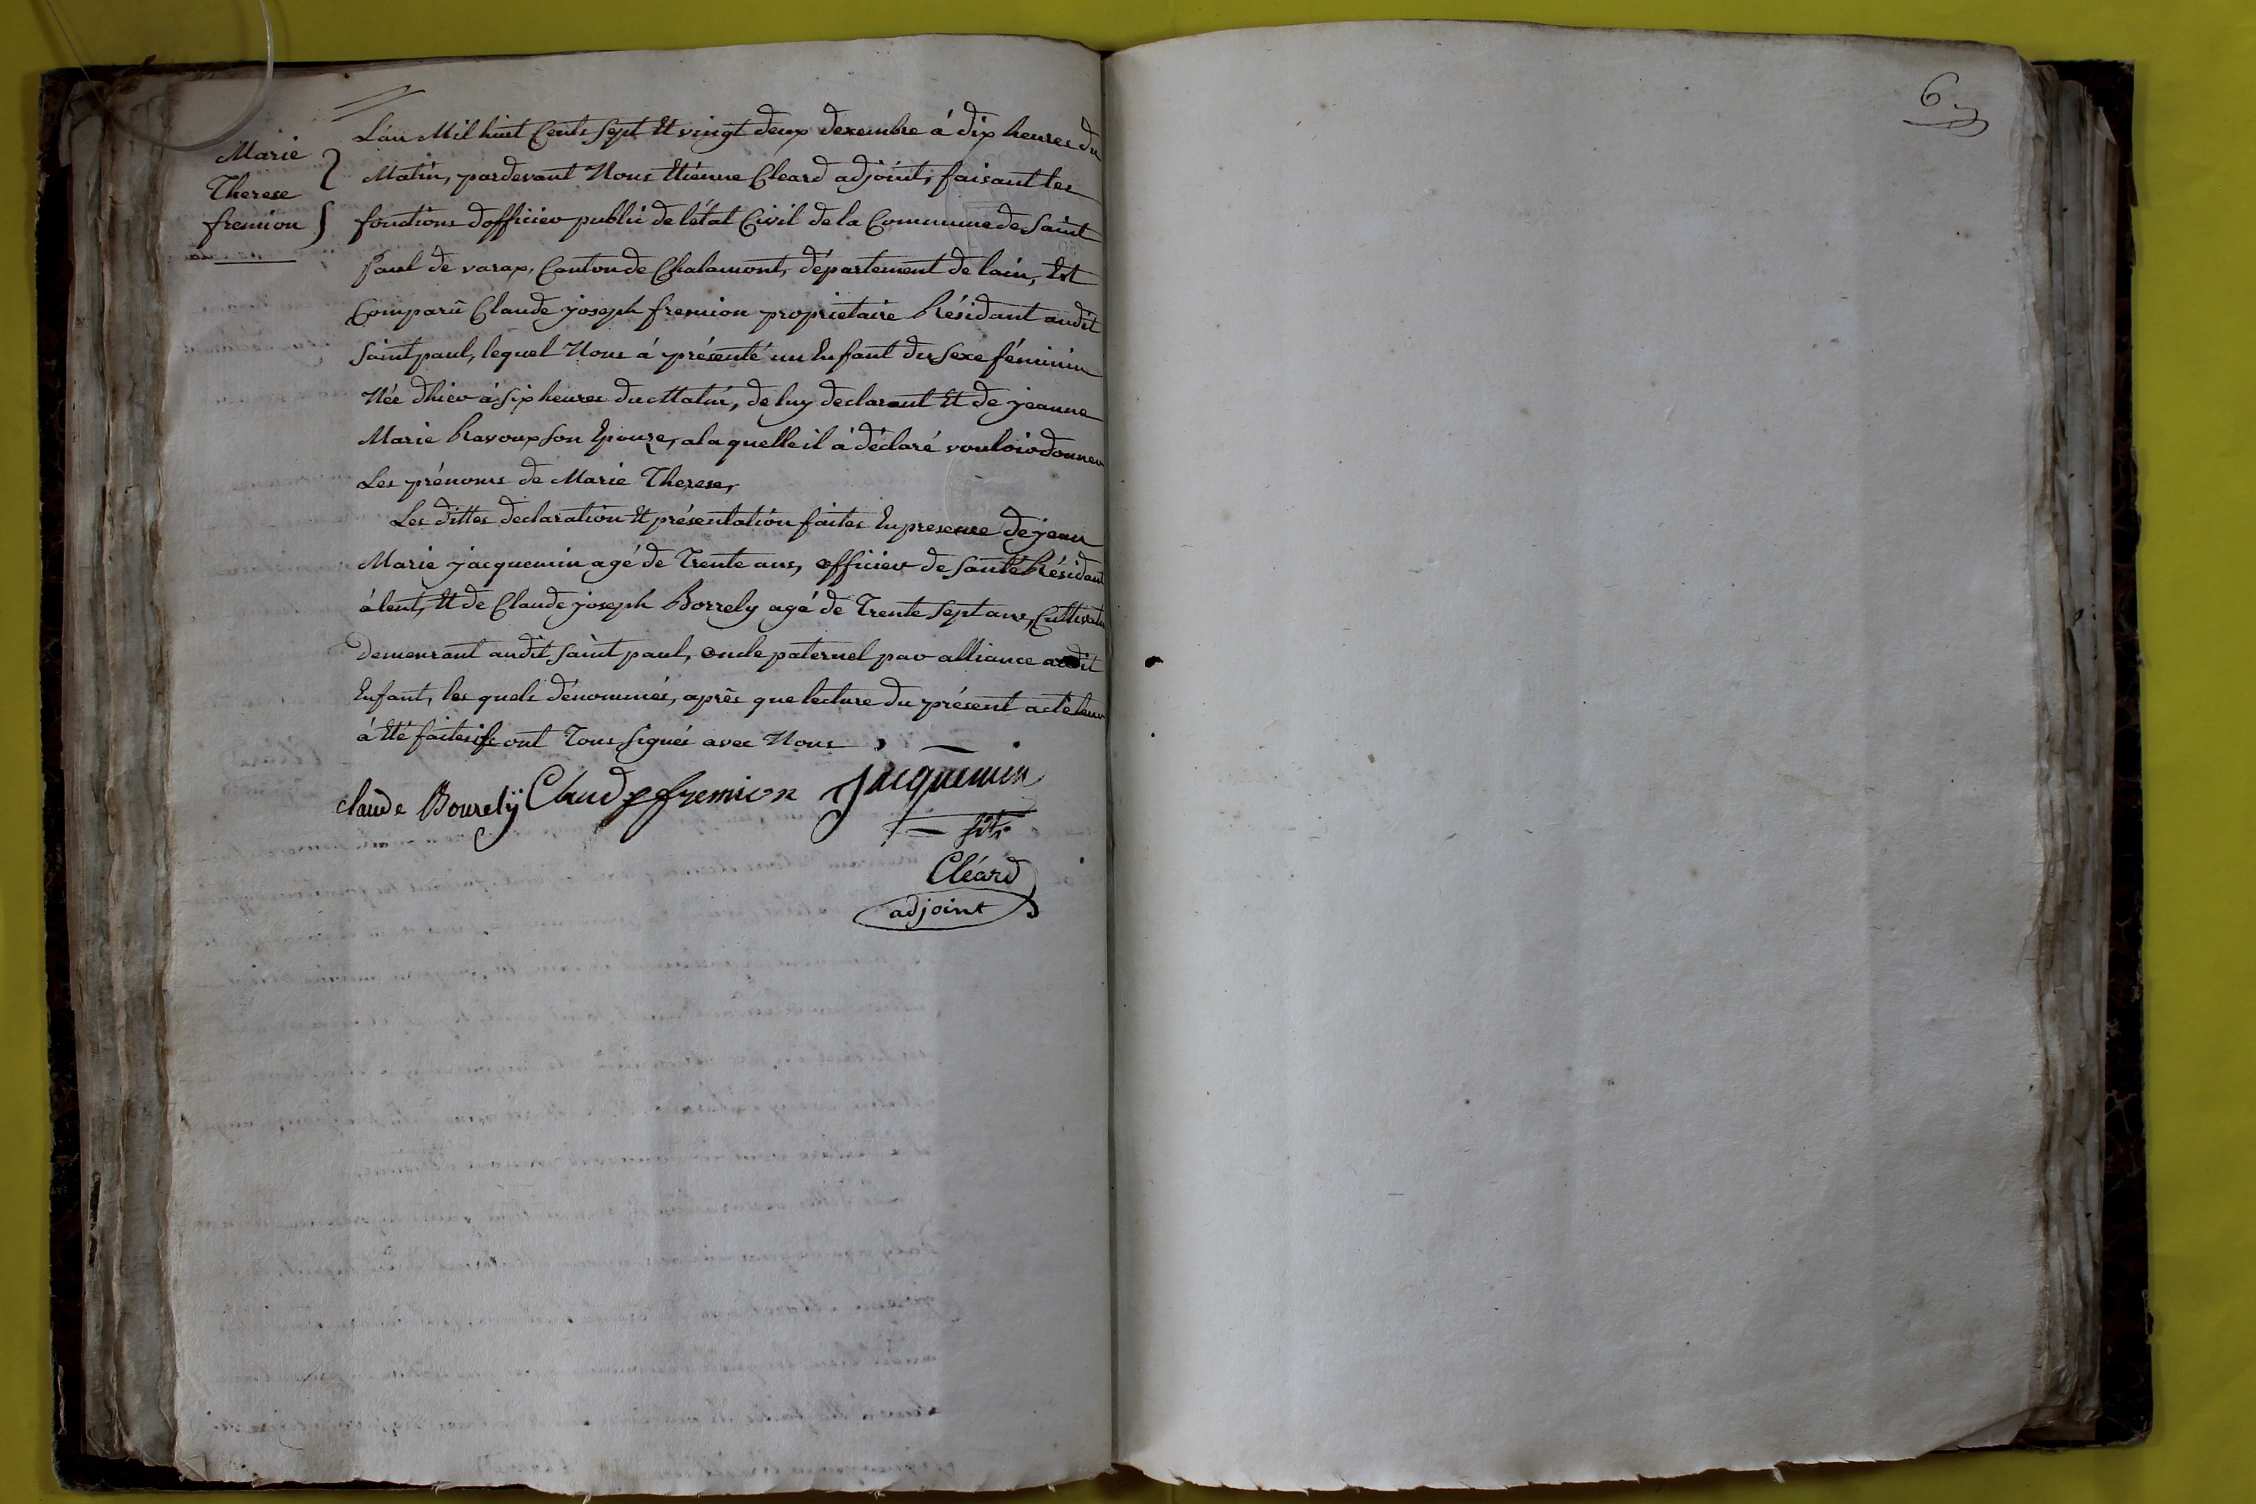 Marie
Therese
fremion
L'an Mil huit Cents Sept Et vingt deux dexembre à dix heures du
Matin, pardevant Nous Etienne Cleard adjoint, faisant les
fonctions d'officier public de l'état Civil de la Commune de Saint
Paul de varax, Canton de Chalamont, département de lain, Est
Comparû Claude joseph fremion proprietaire Résidant audit
Saint paul, lequel Nous à présenté un Enfant du Sexe féminin
Née d'hier à Six heures du Matin, de luy declarant Et de jeanne
Marie Ravoux Son Epouze, a la quelle il à déclaré vouloir donner
Les prénoms de Marie Therese,
Les dittes declaration Et présentation faites En presence de jean
Marie jacquemin agé de Trente ans, officier de Santé Résidant
à lent, Et de Claude joseph Borrely agé de Trente Sept ans, Cultivateur
demeurant audit Saint paul, oncle paternel par alliance audit
Enfant, les quels dénommés, après que lecture du présent acte leur
à Eté faites ont Tous Signés avec Nous
claude Bourelÿ Claude fremion Jacquemin
Cléard
adjoint
6